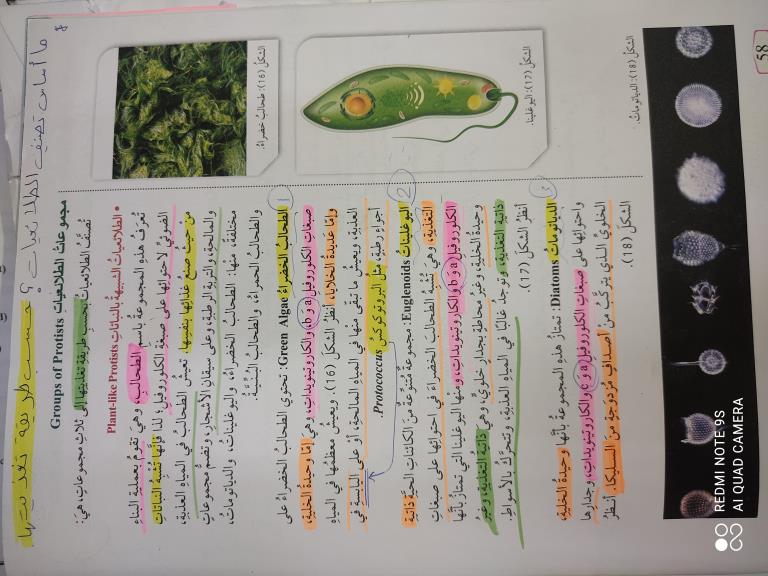 58
ما أساس تصنيف الطلائعيات؟ حسب طريقة تغذيتها
مجموعاتُ الطلائعياتِ Groups of Protists
تُصنَّفُ الطلائعياتُ بحسبِ طريقةِ تغذيتِها إلى ثلاثِ مجموعاتٍ، هيَ:
• الطلائعياتُ الشبيهةُ بالنباتاتِ Plant-like Protists
تُعرَفُ هذهِ المجموعةُ باسمِ الطحالبِ، وهيَ تقومُ بعمليةِ البناءِ
الضوئيِّ لاحتوائِها على صبغةِ الكلوروفيلِ؛ لذا فإنَّها تُشبِهُ النباتاتِ
من حيثُ صنعُ غذائِها بنفسِها. تعيشُ الطحالبُ في المياهِ العذبةِ،
والمالحةِ، والتربةِ الرطبةِ، وعلى سيقانِ الأشجارِ، وتضمُّ مجموعاتٍ
مختلفةً منها: الطحالبُ الخضراءُ، واليوغليناتُ، والدياتوماتُ،
والطحالبُ الحمراءُ، والطحالبُ البُنّيةُ.
1 الطحالبُ الخضراءُ Green Algae: تحتوي الطحالبُ الخضراءُ على
صبغاتِ الكلوروفيلِ a وَ b، والكاروتينويداتِ، وهيَ إمّا وحيدةُ الخليةِ،
وإمّا عديدةُ الخلايا، أنظرُ الشكلَ (16). ويعيشُ معظمُها في المياهِ
العذبةِ، ويعيشُ ما تبقى منها في المياهِ المالحةِ، أو على اليابسةِ في
أجواءٍ رطبةٍ مثلِ البروتوكوكس Protococcus.
2 اليوغليناتُ Euglenoids: مجموعةٌ متنوعةٌ من الكائناتِ الحيةِ ذاتيةِ
التغذيةِ، وهيَ تُشبِهُ الطحالبَ الخضراءَ في احتوائِها على صبغاتِ
الكلوروفيلِ a وَ b والكاروتينويداتِ، ومنها اليوغلينا التي تمتازُ بأنَّها
وحيدةُ الخليةِ، وغيرُ محاطةٍ بجدارٍ خلويٍّ، وهيَ ذاتيةُ التغذيةِ، وغيرُ
ذاتيةِ التغذيةِ، وتوجدُ غالبًا في المياهِ العذبةِ، وتتحركُ بالأسواطِ.
أنظرُ الشكلَ (17).
3 الدياتوماتُ Diatoms: تمتازُ هذهِ المجموعةُ بأنَّها وحيدةُ الخليةِ،
واحتوائِها على صبغاتِ الكلوروفيلِ a وَ c والكاروتينويداتِ، وجدارِها
الخلويِّ الذي يتركبُ من أصدافٍ مُزدوَجةٍ منَ السليكا. أنظرُ
الشكلَ (18).
الشكلُ (16): طحالبُ خضراءُ.
الشكلُ (17): اليوغلينا.
الشكلُ (18): الدياتوماتُ.
REDMI NOTE 9S
AI QUAD CAMERA